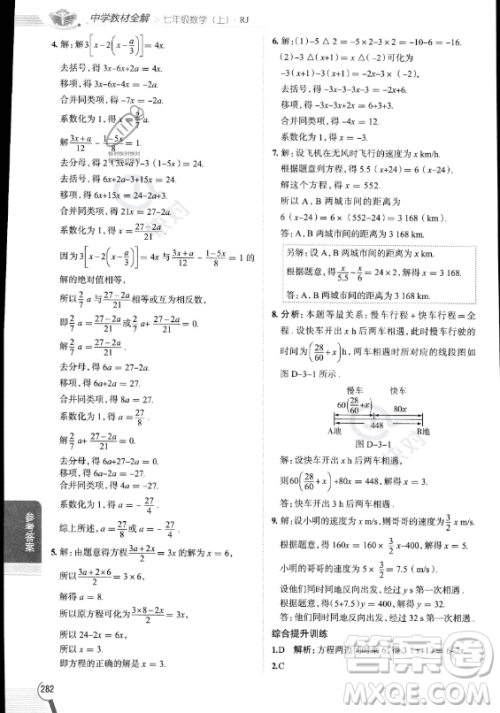 中学教材全解 七年级数学（上）·RJ
4. 解：解3[x-2(x-a/3)]=4x,
去括号，得 3x-6x+2a=4x.
移项，得 3x-6x-4x=-2a.
合并同类项，得 -7x=-2a.
系数化为 1，得 x=2/7 a.
解 (3x+a)/12 - (1-5x)/8 = 1,
去分母，得 2(3x+a)-3(1-5x)=24.
去括号，得 6x+2a-3+15x=24.
移项、合并同类项，得 21x=27-2a.
系数化为 1，得 x=(27-2a)/21.
因为 3[x-2(x-a/3)]=4x 与 (3x+a)/12 - (1-5x)/8 = 1 的
解的绝对值相等，
所以 2/7 a 与 (27-2a)/21 相等或互为相反数，
即 2/7 a=(27-2a)/21 或 2/7 a+(27-2a)/21=0.
解 2/7 a=(27-2a)/21,
去分母，得 6a=27-2a.
移项、合并同类项，得 8a=27.
系数化为 1，得 a=27/8.
解 2/7 a+(27-2a)/21=0,
去分母，得 6a+27-2a=0.
移项、合并同类项，得 4a=-27.
系数化为 1，得 a=-27/4.
综上所述，a=27/8 或 a=-27/4.
5. 解：由题意得方程 (3a+2x)/2=3x 的解为 x=6,
所以 (3a+2×6)/2=3×6,
解得 a=8.
所以原方程可化为 (3×8-2x)/2=3x,
所以 24-2x=6x,
所以 x=3.
即方程的正确的解为 x=3.
6. 解：(1)-5 △ 2=-5×2-2×2=-14.
(2)方程-3 △(x+1)=x△(-2)可变形为
-3(x+1)-2×(-3)=-2x-2x,
去括号，得-3x-3+6=-4x.
7. 解：设飞机在无风时飞行的速度为 x km/h.
根据题意列方程，得 5.5(x+24)=6(x-24).
解这个方程，得 x=552.
所以 A，B 两城市间的距离为
6(x-24)=6×(552-24)=3 168.
答：A，B 两城市间的距离为 3 168 km.
另解：设 A，B 两城市间的距离为 x km.
根据题意，得 x/5.5-x/6=24×2，解得 x=3 168.
答：A，B 两城市间的距离为 3 168 km.
8. 分析：本题等量关系：慢车行程+快车行程=全
程. 设快车开出 x h 后两车相遇，此时慢车行驶的
时间为(28/60+x)h，两车相遇时所对应的线段图如
图 D-3-1
慢车 快车
60(28/60+x) 80x
448
A地 B地
图 D-3-1
解：设快车开出 x h 后两车相遇，
则 60(28/60+x)+80x=448，解得 x=3.
答：快车开出 3 h 后两车相遇.
9. 解：设小明的速度为 x m/s，则哥哥的速度为 3/2 x m/s.
根据题意，得 160x=160×3/2x-400，解得 x=5.
小明的哥哥的速度为 5×3/2=7.5(m/s).
设他们同时同地反向出发，经过 y s 首次相遇，
得(5+7.5)y=400，解得 y=32.
答：他们同时同地反向出发，经过 32 s 首次相遇.
综合提升训练
1.D 解析：方程两边同时乘 6，得 3(x+1)=6-
2.C
参考答案
282